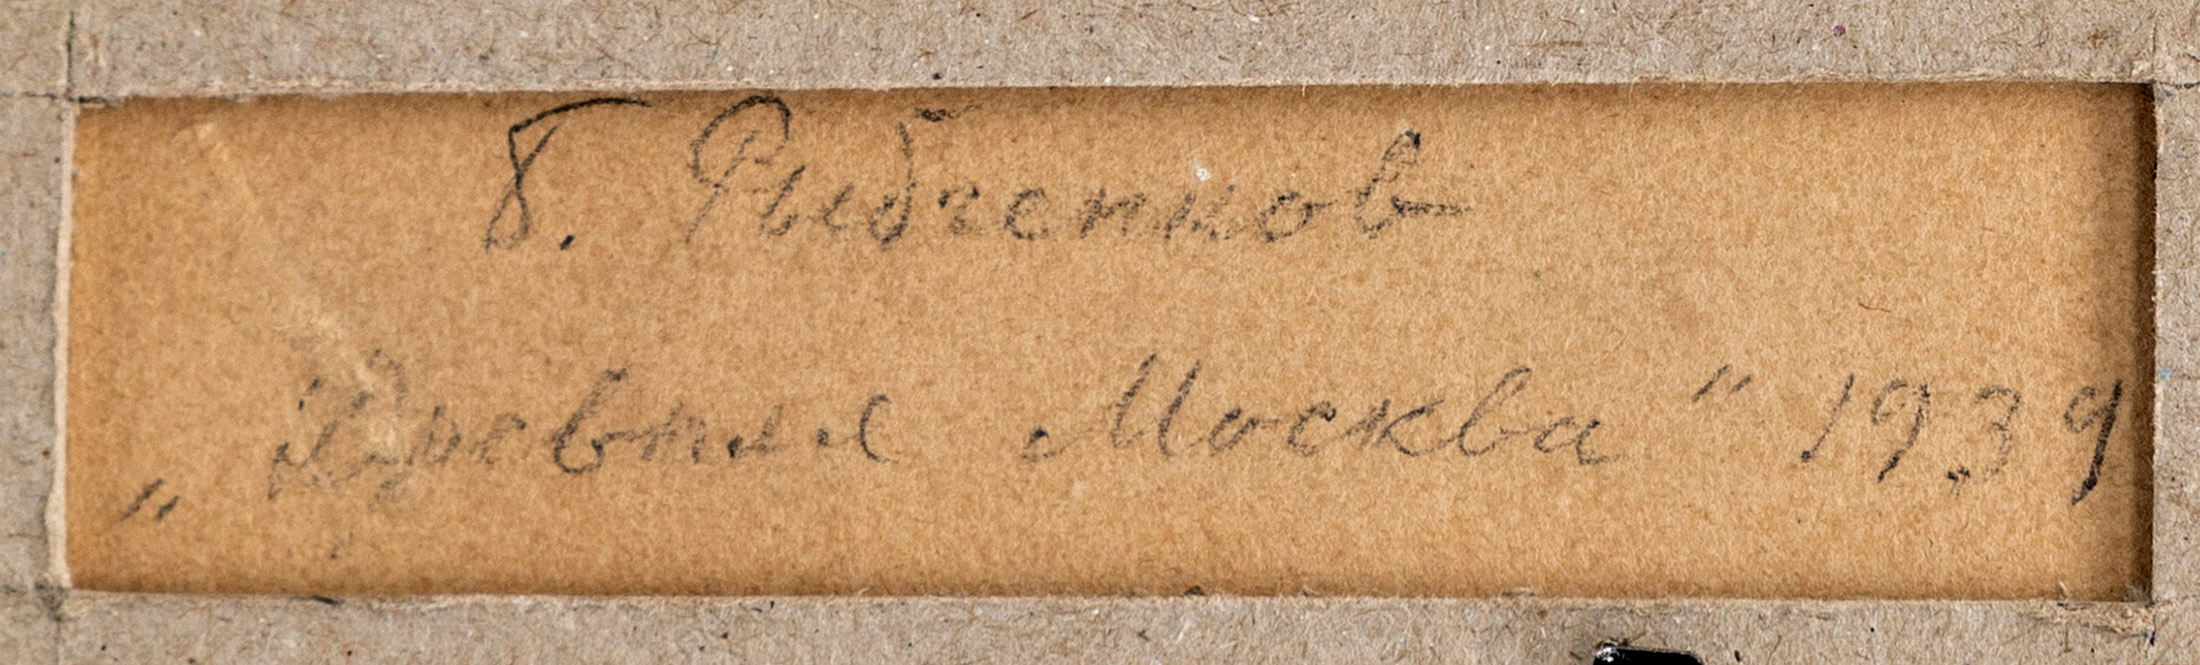 Б. Рыбченков
„Древняя Москва" 1939